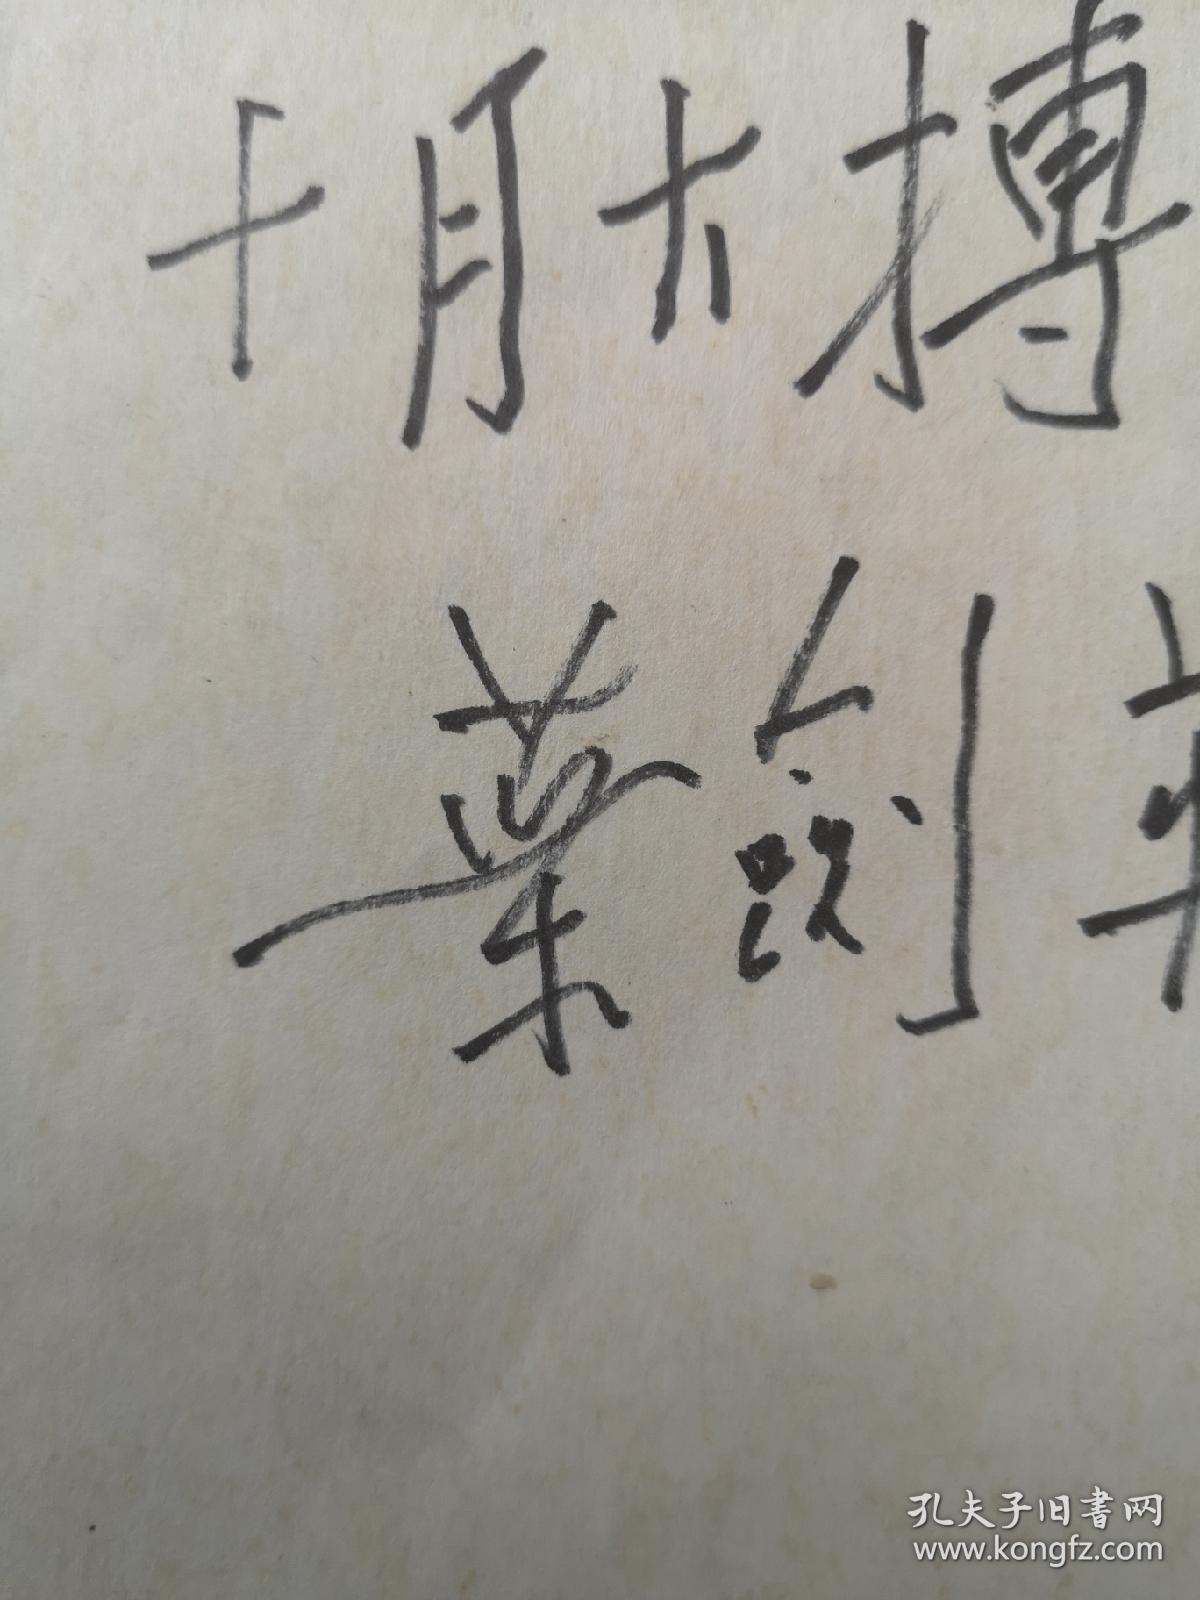 十月大搏
葉劍
孔夫子旧書网
www.kongfz.com